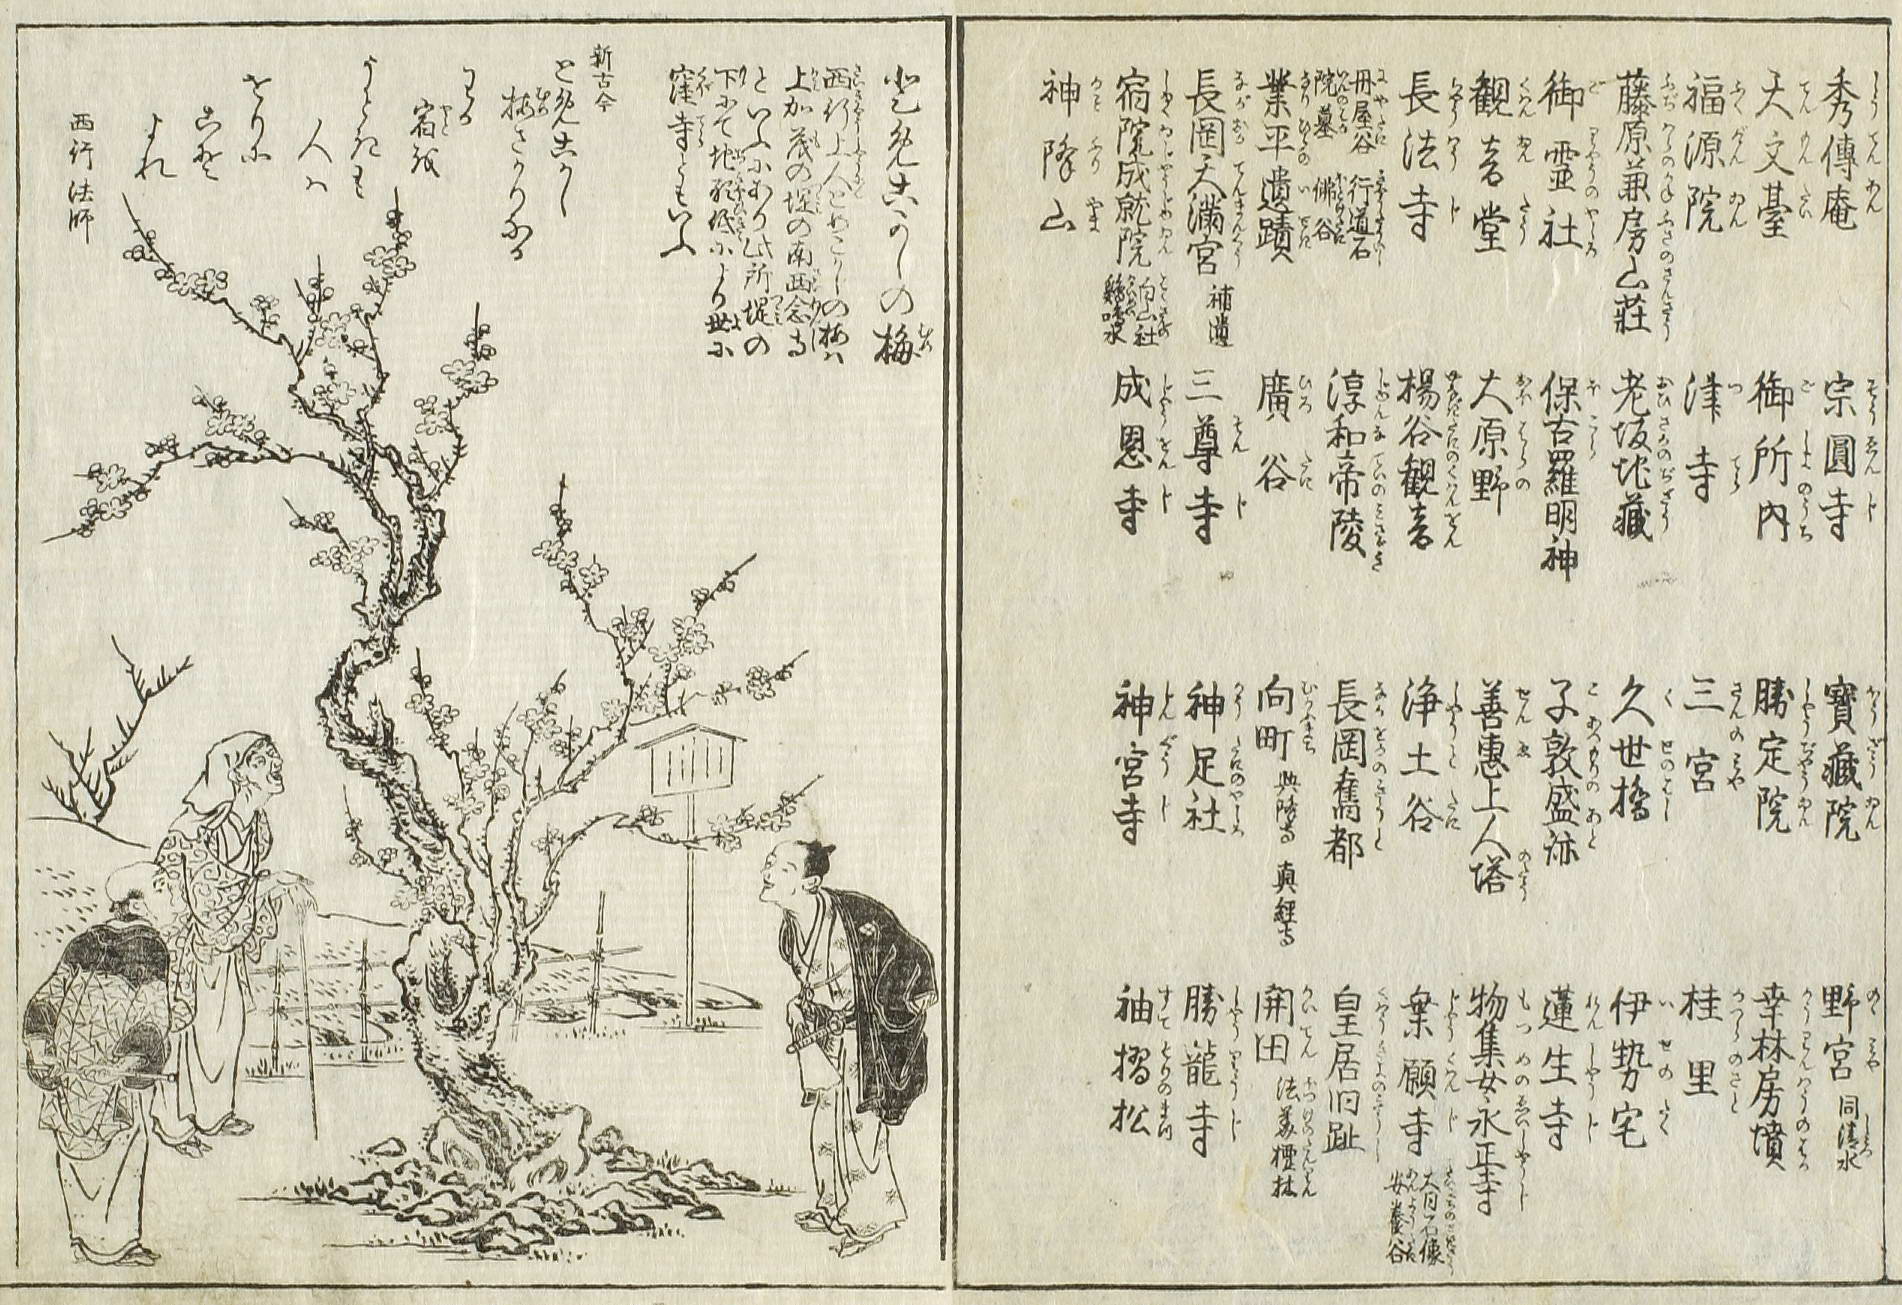 秀傳庵
宗圓寺
寶藏院
野宮 同清水
天文臺
御所内
勝定院
幸林房墳
福源院
津寺
三宮
桂里
藤原兼房山荘
老坂地藏
久世橋
伊勢宅
御霊社
保古羅明神
子敦盛跡
蓮生寺
観音堂
大原野
善惠上人塔
物集女永正寺
長法寺
楊谷観音
浄土谷
乗願寺 大日石像 安養谷
丹屋谷 行道石
院墓 佛谷
淳和帝陵
長岡舊都
皇居旧趾
業平遺蹟
廣谷
向町 興隆寺 真經寺
開田
長岡天満宮 補遺
三尊寺
神足社
勝龍寺
宿院成就院 白山社 鶏鳴水
成恩寺
神宮寺
袖摺松
神降山
とめこかしの梅
西行上人とめこかしの梅ハ
上加茂の堤の南西念寺
といふにあり此所堤の
下にて地形低により世に
窪寺ともいふ
新古今
とめこかし
梅さかりなる
わか
宿を
うときも
人ハ
をりに
こそ
よれ
西行法師